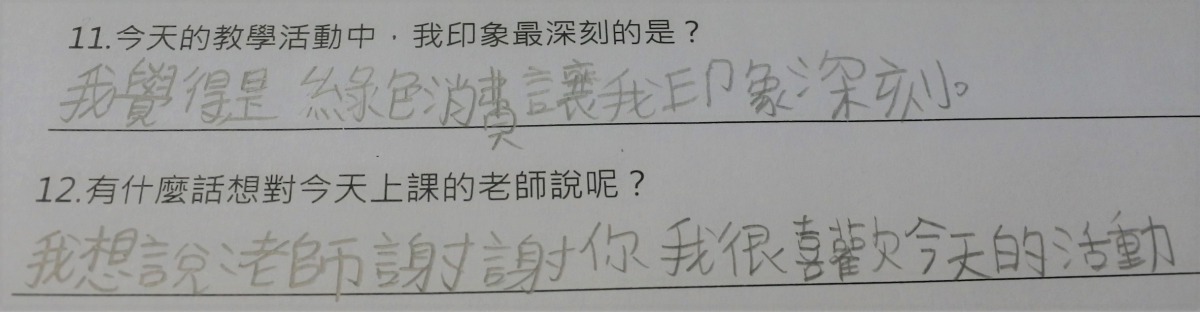 11.今天的教學活動中，我印象最深刻的是？
我覺得是 綠色消費讓我印象深刻。
12.有什麼話想對今天上課的老師說呢？
我想說：老師謝謝你 我很喜歡今天的活動